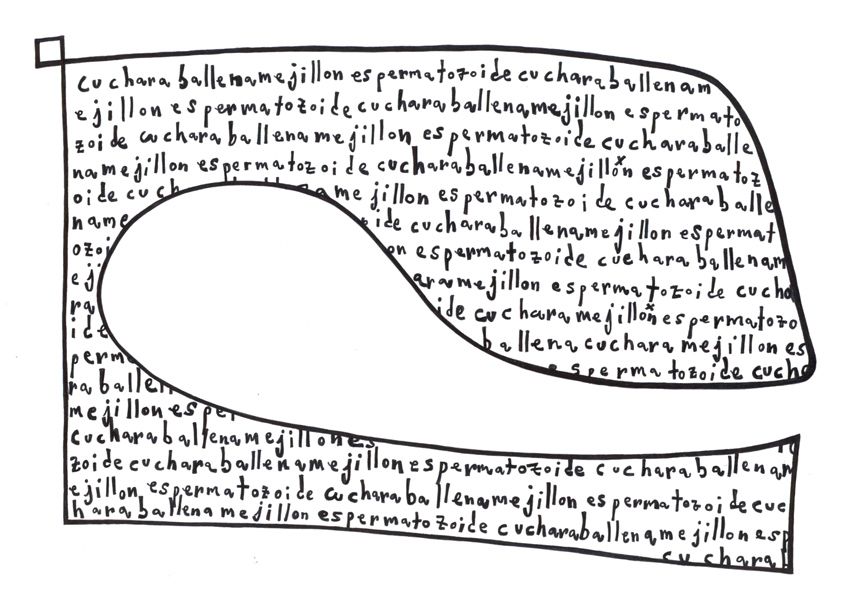 cuchara ballena mejillon espermatozoide cucharaballenam
ejillon espermatozoide cucharaballenamejillon espermato
zoide cuchara ballena mejillon espermatozoide cucharaballe
namejillon espermatozoide cucharaballenamejillon espermatoz
oide cuch na me jillon espermatozoide cuchara balle
name ide cuchara ballenamejillon espermat
ozoi on espermatozoide cuchara ballenam
eji aramejillon espermatozoide cucha
ra ide cuchara mejillon espermatozo
ide ballena cuchara mejillon es
perm espermatozoide cucha
ra ballen
mejillon esper
cuchara ballena mejillones
zoide cuchara ballena mejillon espermatozoide cuchara ballenam
ejillon espermatozoide cuchara ballenamejillon espermatozoide cuc
hara ballena mejillon espermatozoide cucharaballena mejillon esp
cuchara